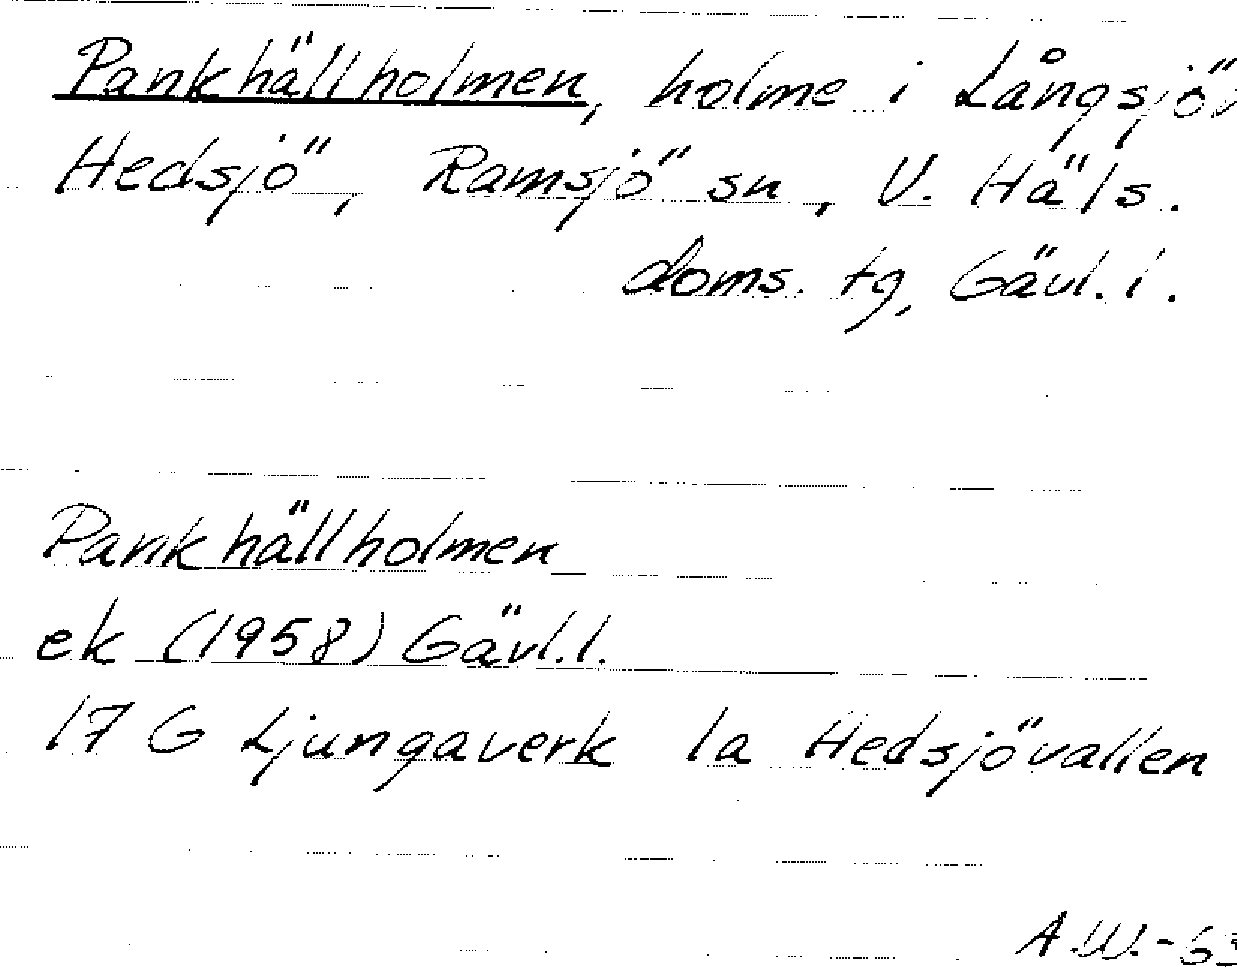 Pankhällholmen, holme i Långsjön
Hedsjö, Ramsjö sn, V. Häls.
doms. tg, Gävl. l.
Pankhällholmen
ek (1958) Gävl. l.
17 G Ljungaverk 1a Hedsjövallen
A.W.-63